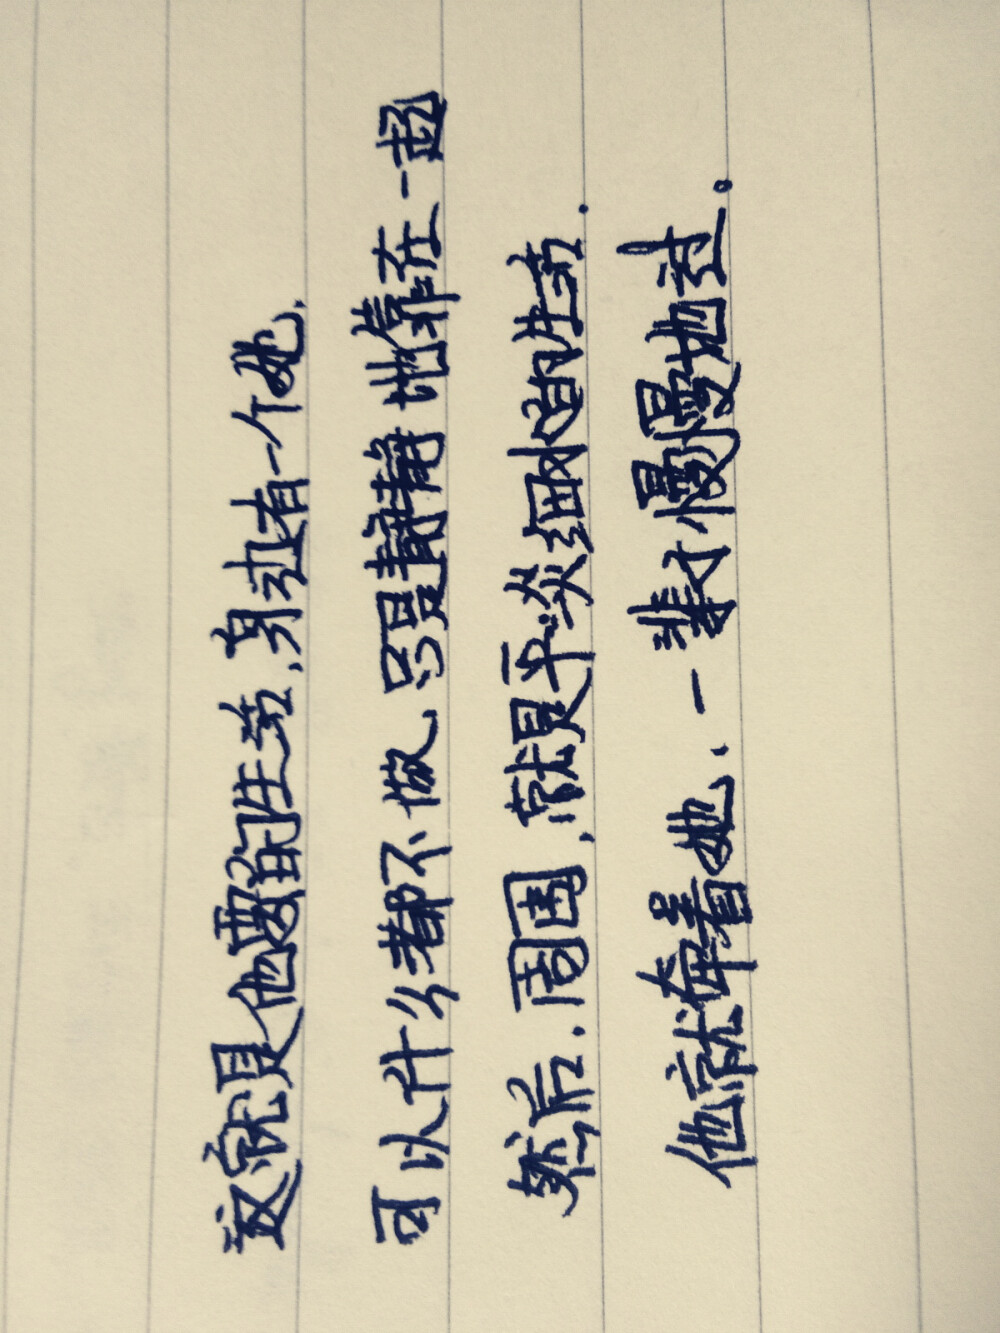 这就是他要的生活,身边有一个她,
可以什么都不做、只是静静地靠在一起
然后.周围,就是平淡细密的生活.
他就牵着她、一辈子慢慢地过。